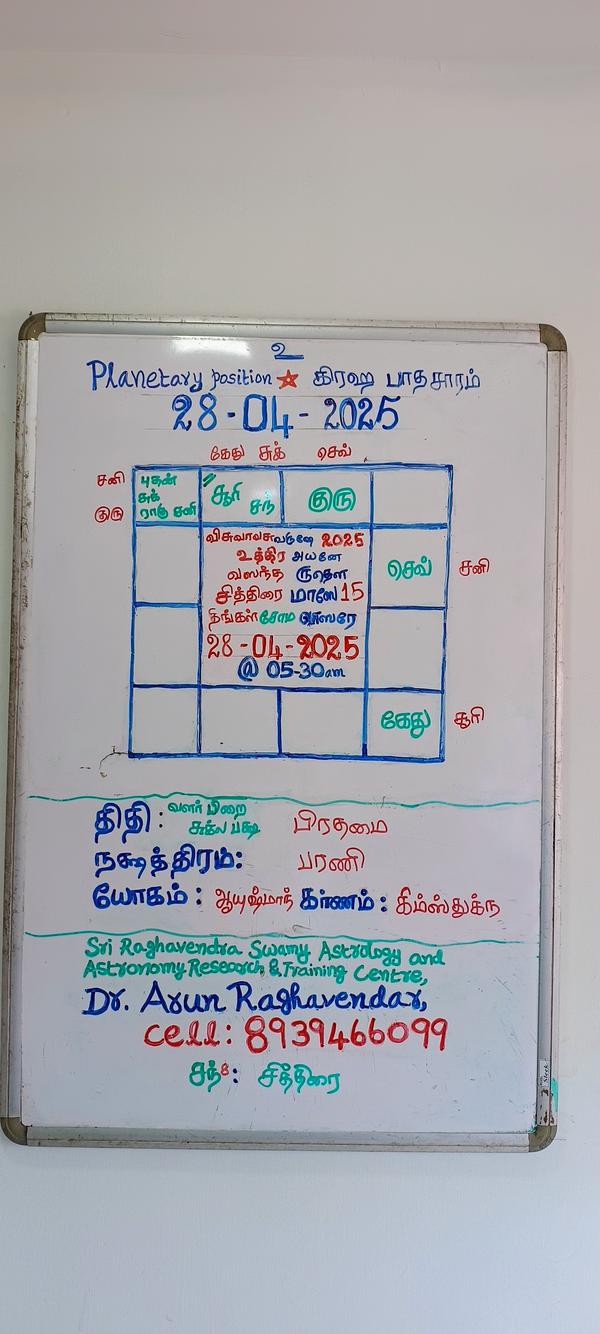 உ
Planetary position கிரஹ பாதசாரம்
28-04-2025
கேது சுக் செவ்
சனி
குரு
புதன்
சுக்
ராகு சனி
சூரி சந்
குரு
விசுவாவசுவருஷே 2025
உத்திர அயனே
வஸந்த ருதௌ
சித்திரை மாஸே 15
திங்கள் சோம வாஸரே
28-04-2025
@ 05-30am
செவ்
சனி
கேது
சூரி
திதி: வளர் பிறை
சுக்ல பக்ஷ பிரதமை
நக்ஷத்திரம்: பரணி
யோகம்: ஆயுஷ்மாந் கர்ணம்: கிம்ஸ்துக்ந
Sri Raghavendra Swamy Astrology and
Astronomy Research & Training Centre,
Dr. Arun Raghavendar,
cell: 8939466099
சந்8: சித்திரை